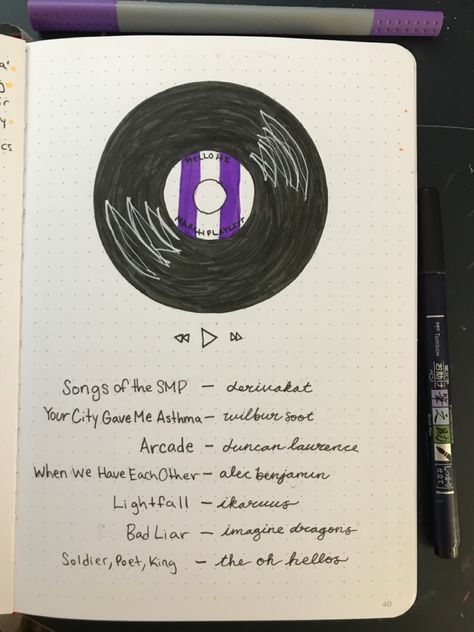 HELLO HI
MARCH PLAYLIST
Songs of the SMP – derivakat
Your City Gave Me Asthma – wilbur soot
Arcade – duncan lawrence
When We Have Each Other – alec benjamin
Lightfall – ikaruus
Bad Liar – imagine dragons
Soldier, Poet, King – the oh hellos
40
Tombow